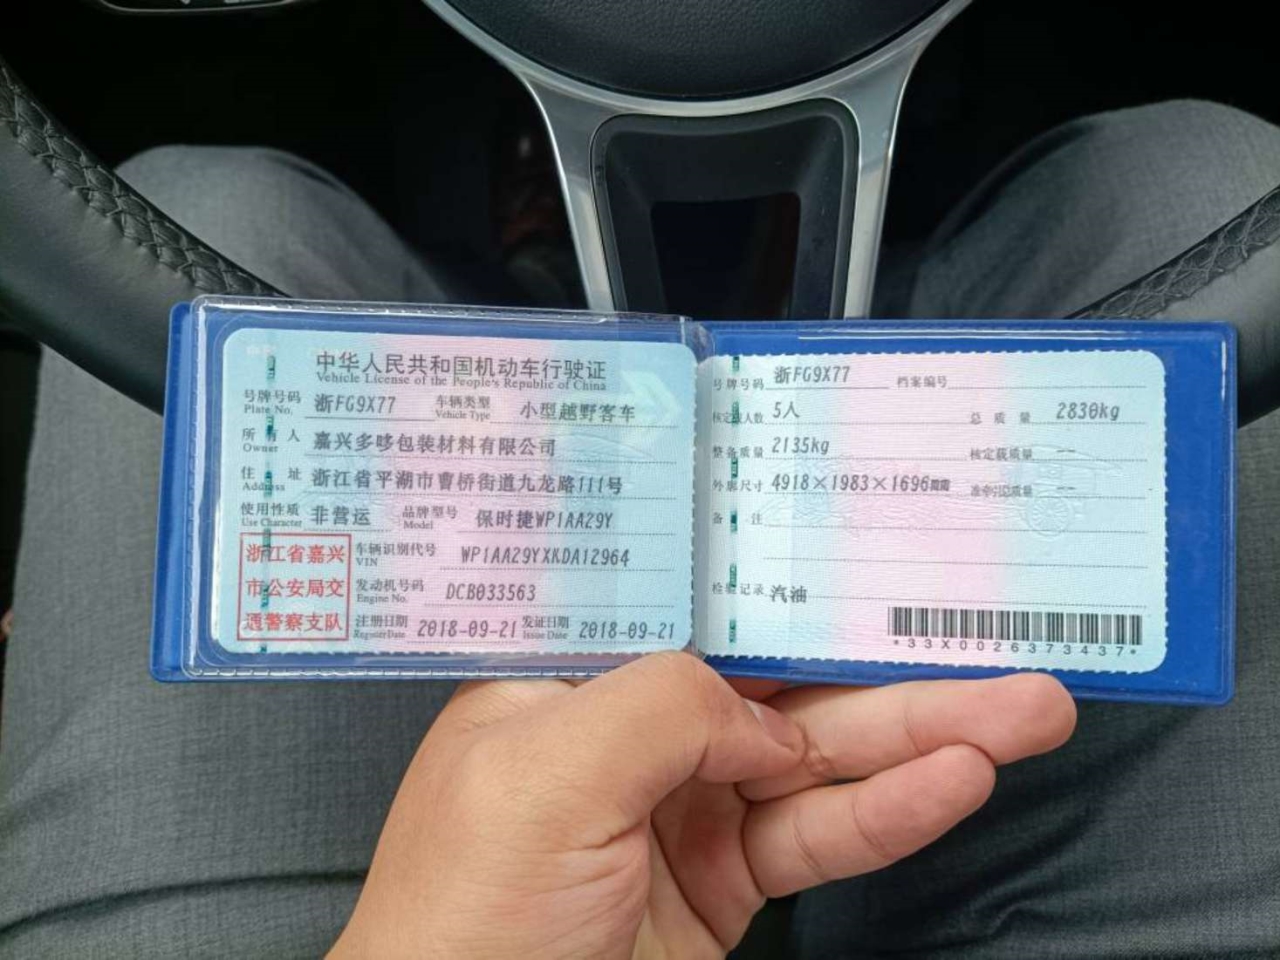 中华人民共和国机动车行驶证
Vehicle License of the People's Republic of China
号牌号码 Plate No. 浙FG9X77 车辆类型 Vehicle Type 小型越野客车
所有人 Owner 嘉兴多哆包装材料有限公司
住址 Address 浙江省平湖市曹桥街道九龙路111号
使用性质 Use Character 非营运 品牌型号 Model 保时捷WP1AA29Y
浙江省嘉兴
市公安局交
通警察支队
车辆识别代号 VIN WP1AA29YXKDA12964
发动机号码 Engine No. DCB033563
注册日期 Register Date 2018-09-21 发证日期 Issue Date 2018-09-21
号牌号码 浙FG9X77 档案编号
核定载人数 5人 总质量 2830kg
整备质量 2135kg 核定载质量 --
外廓尺寸 4918×1983×1696 --
备注
检验记录 汽油
*33X0026373437*